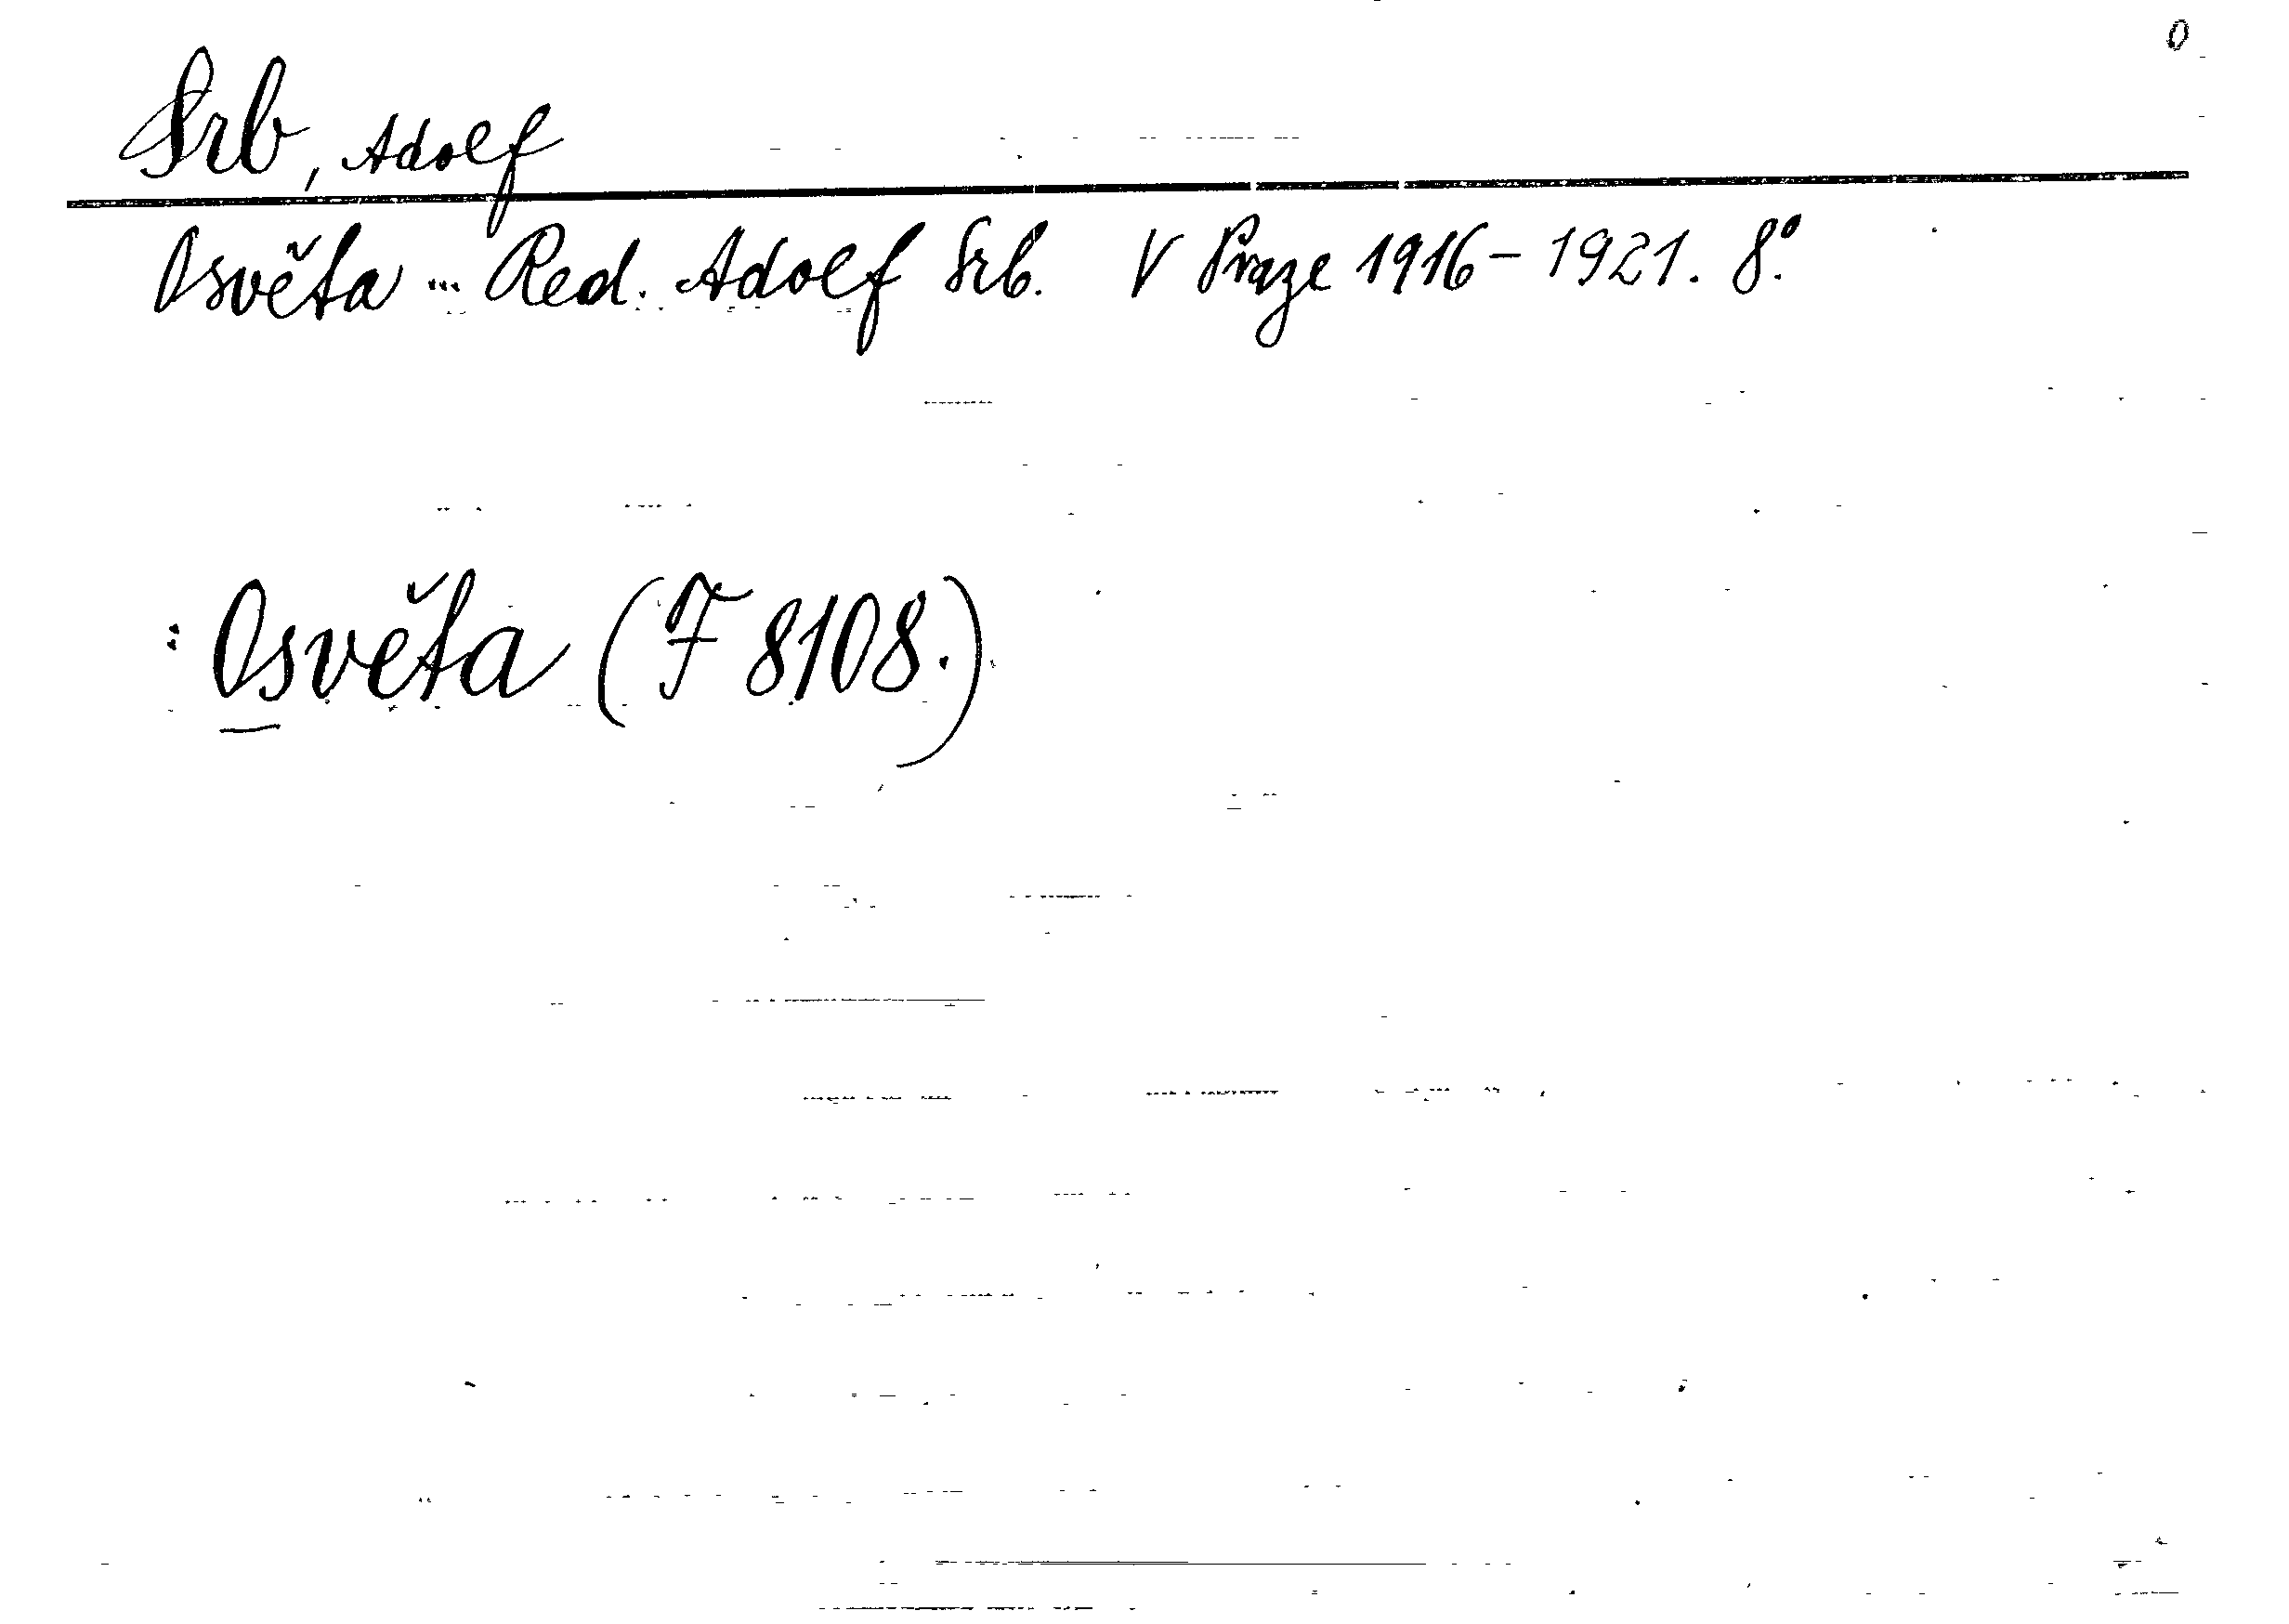 0
Srb, Adolf
Osvěta ... Red. Adolf Srb. V Praze 1916-1921. 8°.
: Osvěta (F 8108.)